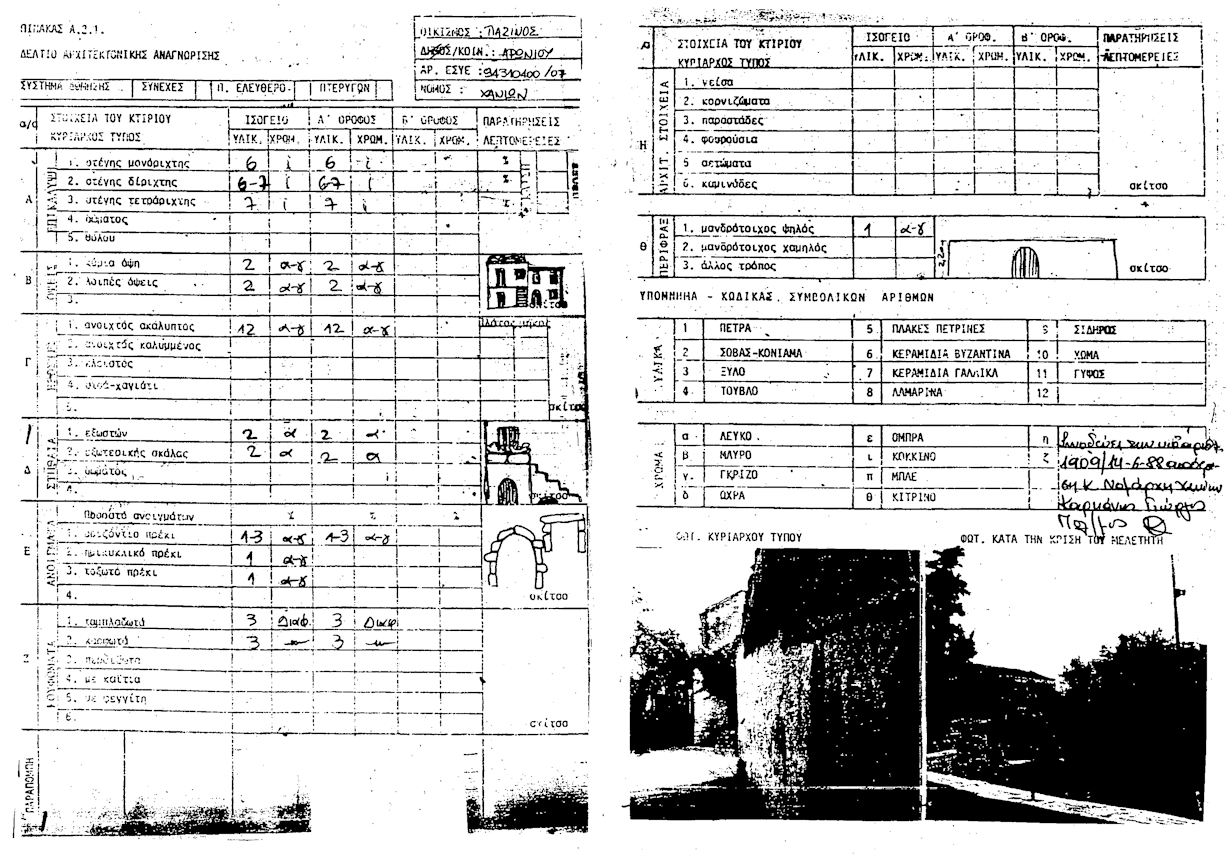 ΠΙΝΑΚΑΣ Α.2.1.
ΔΕΛΤΙΟ ΑΡΧΙΤΕΚΤΟΝΙΚΗΣ ΑΝΑΓΝΩΡΙΣΗΣ
ΟΙΚΙΣΜΟΣ : ΠΑΖΙΝΟΣ
ΔΗΜΟΣ/ΚΟΙΝ. : ΑΡΩΝΙΟΥ
ΑΡ. ΕΣΥΕ : 94310400/07
ΝΟΜΟΣ : ΧΑΝΙΩΝ
ΣΥΣΤΗΜΑ ΔΟΜΗΣΗΣ ΣΥΝΕΧΕΣ Π. ΕΛΕΥΘΕΡΟ. ΠΤΕΡΥΓΩΝ
α/α ΣΤΟΙΧΕΙΑ ΤΟΥ ΚΤΙΡΙΟΥ ΙΣΟΓΕΙΟ Α' ΟΡΟΦΟΣ Β' ΟΡΟΦΟΣ ΠΑΡΑΤΗΡΗΣΕΙΣ
ΚΥΡΙΑΡΧΟΣ ΤΥΠΟΣ ΥΛΙΚ. ΧΡΩΜ. ΥΛΙΚ. ΧΡΩΜ. ΥΛΙΚ. ΧΡΩΜ. ΛΕΠΤΟΜΕΡΕΙΕΣ
Α ΕΠΙΚΑΛΥΨΗ
1. στέγης μονόριχτης 6 ι 6 ι %
2. στέγης δίριχτης 6-7 ι 6-7 ι %
3. στέγης τετράριχτης 7 ι 7 ι %
4. δώματος
5. θόλου
Β ΟΨΕΙΣ
1. κύρια όψη 2 α-γ 2 α-γ
2. λοιπές όψεις 2 α-γ 2 α-γ
3.
σκίτσο
Γ
1. ανοιχτός ακάλυπτος 12 α-γ 12 α-γ Πλάτος μήκος
2. ανοιχτός καλυμμένος
3. κλειστός
4. χαγιάτι
5.
σκίτσο
Δ
1. εξωστών 2 α 2 α
2. εξωτερικής σκάλας 2 α 2 α
3. δώματος
4.
σκίτσο
Ε ΑΝΟΙΓΜΑΤΑ
Ποσοστό ανοιγμάτων % % %
1. οριζόντιο πρέκι 1-3 α-γ 1-3 α-γ
2. ημικυκλικό πρέκι 1 α-γ
3. τοξωτό πρέκι 1 α-γ
4.
σκίτσο
Ζ ΚΟΥΦΩΜΑΤΑ
1. ταμπλαδωτά 3 Διαφ. 3 Διαφ
2. καρφωτά 3 -〃- 3 〃
4. με καΐτια
5. με φεγγίτη
6.
σκίτσο
ΠΑΡΑΠΟΜΠΗ
α ΣΤΟΙΧΕΙΑ ΤΟΥ ΚΤΙΡΙΟΥ ΙΣΟΓΕΙΟ Α' ΟΡΟΦ. Β' ΟΡΟΦ. ΠΑΡΑΤΗΡΗΣΕΙΣ
ΚΥΡΙΑΡΧΟΣ ΤΥΠΟΣ ΥΛΙΚ. ΧΡΩΜ. ΥΛΙΚ. ΧΡΩΜ. ΥΛΙΚ. ΧΡΩΜ. ΛΕΠΤΟΜΕΡΕΙΕΣ
Η ΑΡΧΙΤ. ΣΤΟΙΧΕΙΑ
1. γείσα
2. κορνιζώματα
3. παραστάδες
4. φουρούσια
5 αετώματα
6. καμινάδες
σκίτσο
Θ ΠΕΡΙΦΡΑΞ
1. μανδρότοιχος ψηλός 1 α-γ
2. μανδρότοιχος χαμηλός
3. άλλος τρόπος
σκίτσο
ΥΠΟΜΝΗΜΑ - ΚΩΔΙΚΑΣ. ΣΥΜΒΟΛΙΚΩΝ ΑΡΙΘΜΩΝ
ΥΛΙΚΑ
1 ΠΕΤΡΑ 5 ΠΛΑΚΕΣ ΠΕΤΡΙΝΕΣ 9 ΣΙΔΗΡΟΣ
2 ΣΟΒΑΣ-ΚΟΝΙΑΜΑ 6 ΚΕΡΑΜΙΔΙΑ ΒΥΖΑΝΤΙΝΑ 10 ΧΩΜΑ
3 ΞΥΛΟ 7 ΚΕΡΑΜΙΔΙΑ ΓΑΛΛΙΚΑ 11 ΓΥΨΟΣ
4 ΤΟΥΒΛΟ 8 ΛΑΜΑΡΙΝΑ 12
ΧΡΩΜΑ
α ΛΕΥΚΟ. ε ΟΜΠΡΑ η
β ΜΑΥΡΟ ι ΚΟΚΚΙΝΟ ζ
γ. ΓΚΡΙΖΟ π ΜΠΛΕ
δ ΩΧΡΑ θ ΚΙΤΡΙΝΟ
Συνοδεύει την
1909/14-6-88
ΦΩΤ. ΚΥΡΙΑΡΧΟΥ ΤΥΠΟΥ
ΦΩΤ. ΚΑΤΑ ΤΗΝ ΚΡΙΣΗ ΤΟΥ ΜΕΛΕΤΗΤΗ